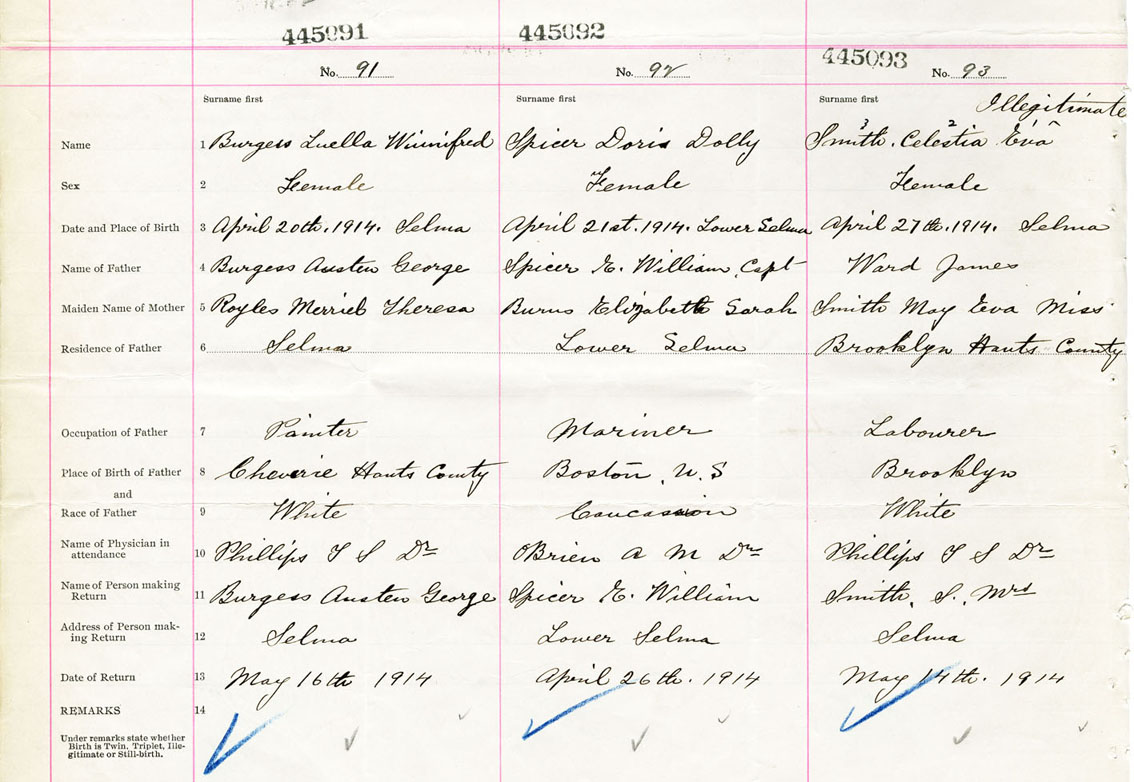 445091 445092 445093
No. 91 No. 92 No. 93
Surname first Surname first Surname first Illegitimate
3 2 1
Name 1 Burgess Luella Winnifred Spicer Doris Dolly Smith. Celestia Eva
Sex 2 Female Female Female
Date and Place of Birth 3 April 20th. 1914. Selma April 21st. 1914. Lower Selma April 27th. 1914. Selma
Name of Father 4 Burgess Austen George Spicer E. William, Capt Ward James
Maiden Name of Mother 5 Royles Merrieb Theresa Burns Elizabeth Sarah Smith May Eva Miss
Residence of Father 6 Selma Lower Selma Brooklyn Hants County
Occupation of Father 7 Painter Mariner Labourer
Place of Birth of Father 8 Cheverie Hants County Boston, U. S Brooklyn
and
Race of Father 9 White Caucasion White
Name of Physician in
attendance 10 Phillips T S Dr O'Brien A M Dr Phillips T S Dr
Name of Person making
Return 11 Burgess Austen George Spicer E. William Smith, S, Mrs
Address of Person mak-
ing Return 12 Selma Lower Selma Selma
Date of Return 13 May 16th 1914 April 26th. 1914 May 14th. 1914
REMARKS 14
Under remarks state whether
Birth is Twin, Triplet, Ille-
gitimate or Still-birth.